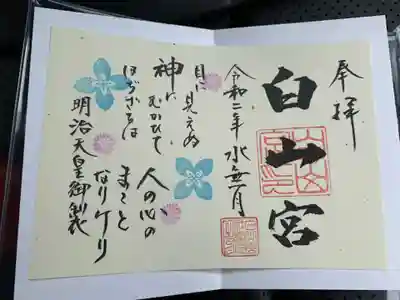 奉拝
白山宮
令和二年 水無月
目に見えぬ
神に
むかひて
はぢざるは
人の心の
まこと
なりけり
明治天皇御製